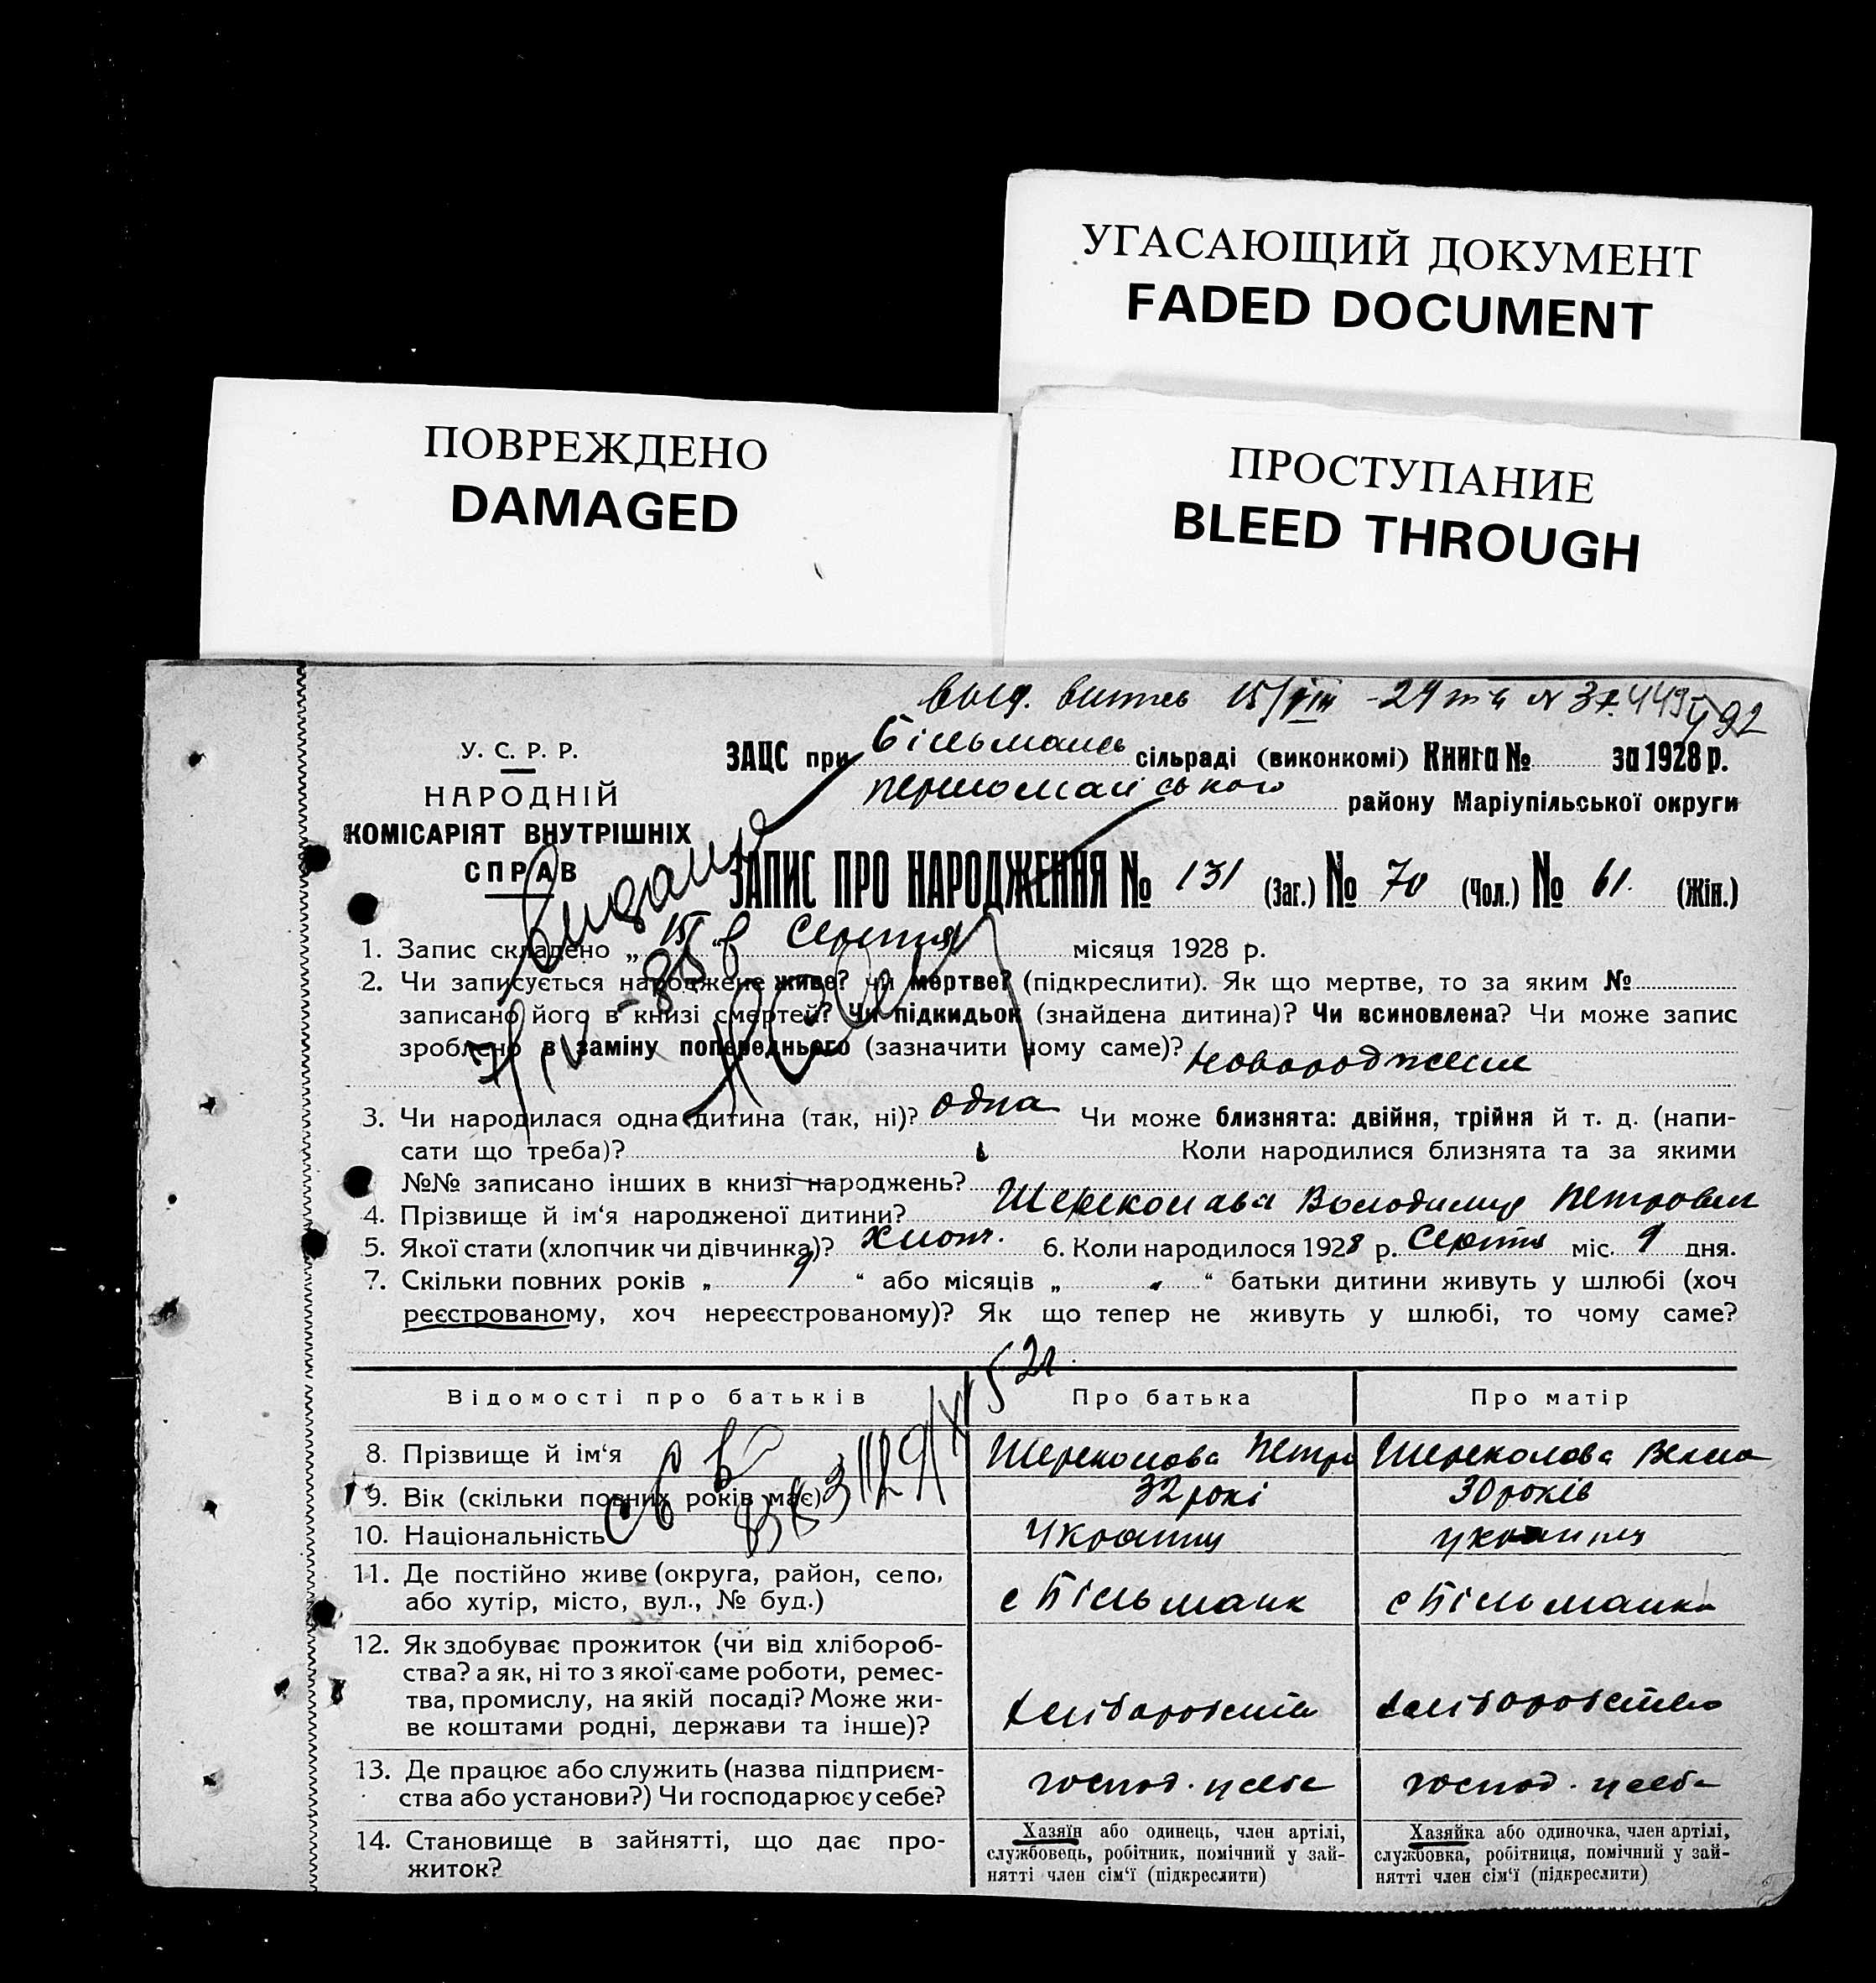 УГАСАЮЩИЙ ДОКУМЕНТ
FADED DOCUMENT
ПОВРЕЖДЕНО
DAMAGED
ПРОСТУПАНИЕ
BLEED THROUGH
15/VIII
У. С. Р. Р.
НАРОДНІЙ
КОМІСАРІЯТ ВНУТРІШНІХ
СПРАВ
ЗАЦС при Більмансь сільраді (виконкомі) Книга № за 1928 р.
першомайського району Маріупільської округи
ЗАПИС ПРО НАРОДЖЕННЯ № 131 (Заг.) № 70 (Чол.) № 61. (Жін.)
1. Запис складено „ 15 “ Серпня місяця 1928 р.
2. Чи записується народжене живе? чи мертве? (підкреслити). Як що мертве, то за яким №
записано його в книзі смертей? Чи підкидьок (знайдена дитина)? Чи всиновлена? Чи може запис
зроблено в заміну попереднього (зазначити чому саме)? новорожденн
3. Чи народилася одна дитина (так, ні)? одна Чи може близнята: двійня, трійня й т. д. (напи-
сати що треба)? Коли народилися близнята та за якими
№№ записано інших в книзі народжень?
4. Прізвище й ім‘я народженої дитини? Шереколава Володимир Петрович
5. Якої стати (хлопчик чи дівчинка)? хлоп. 6. Коли народилося 1928 р. Серпня міс. 9 дня.
7. Скільки повних років „ 9 “ або місяців „ “ батьки дитини живуть у шлюбі (хоч
реєстрованому, хоч нереєстрованому)? Як що тепер не живуть у шлюбі, то чому саме?
Відомості про батьків Про батька Про матір
8. Прізвище й ім‘я Шереколова Петро Шереколова
9. Вік (скільки повних років має) 32 рокі 30 років
10. Національність Україн україн
11. Де постійно живе (округа, район, село,
або хутір, місто, вул., № буд.) с Більманк с Більманка
12. Як здобуває прожиток (чи від хлібороб-
ства? а як, ні то з якої саме роботи, ремес-
тва, промислу, на якій посаді? Може жи-
ве коштами родні, держави та інше)? хліборобств хліборобство
13. Де працює або служить (назва підприєм-
ства або установи?) Чи господарює у себе? господ. у себе господ. у себе
14. Становище в зайнятті, що дає про-
житок?
Хазяїн або одинець, член артілі,
службовець, робітник, помічний у зай-
нятті член сім‘ї (підкреслити)
Хазяйка або одиночка, член артілі,
службовка, робітниця, помічний у зай-
нятті член сім‘ї (підкреслити)